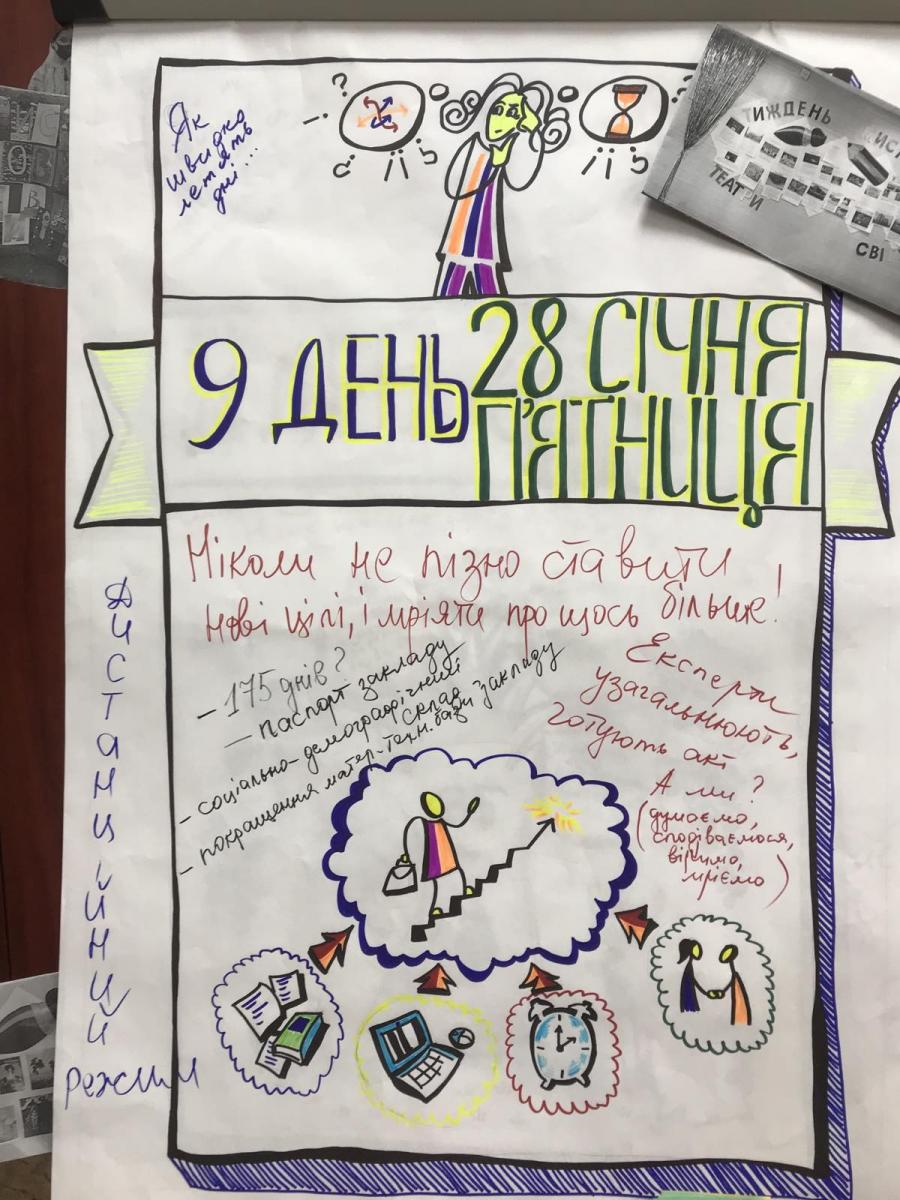 Як
швидко
летять
дні...
ТИЖДЕНЬ
ТЕАТРИ
СВІ
9 ДЕНЬ
28 СІЧНЯ
П'ЯТНИЦЯ
Ніколи не пізно ставити
нові цілі, і мріяти про щось більше!
- 175 днів?
- паспорт закладу
- соціально-демографічний
склад закладу
- покращення матер.-техн. бази
Експерти
узагальнюють,
готують акт
А ми?
(думаємо,
сподіваємося,
віримо,
мріємо)
Дистанційний
режим